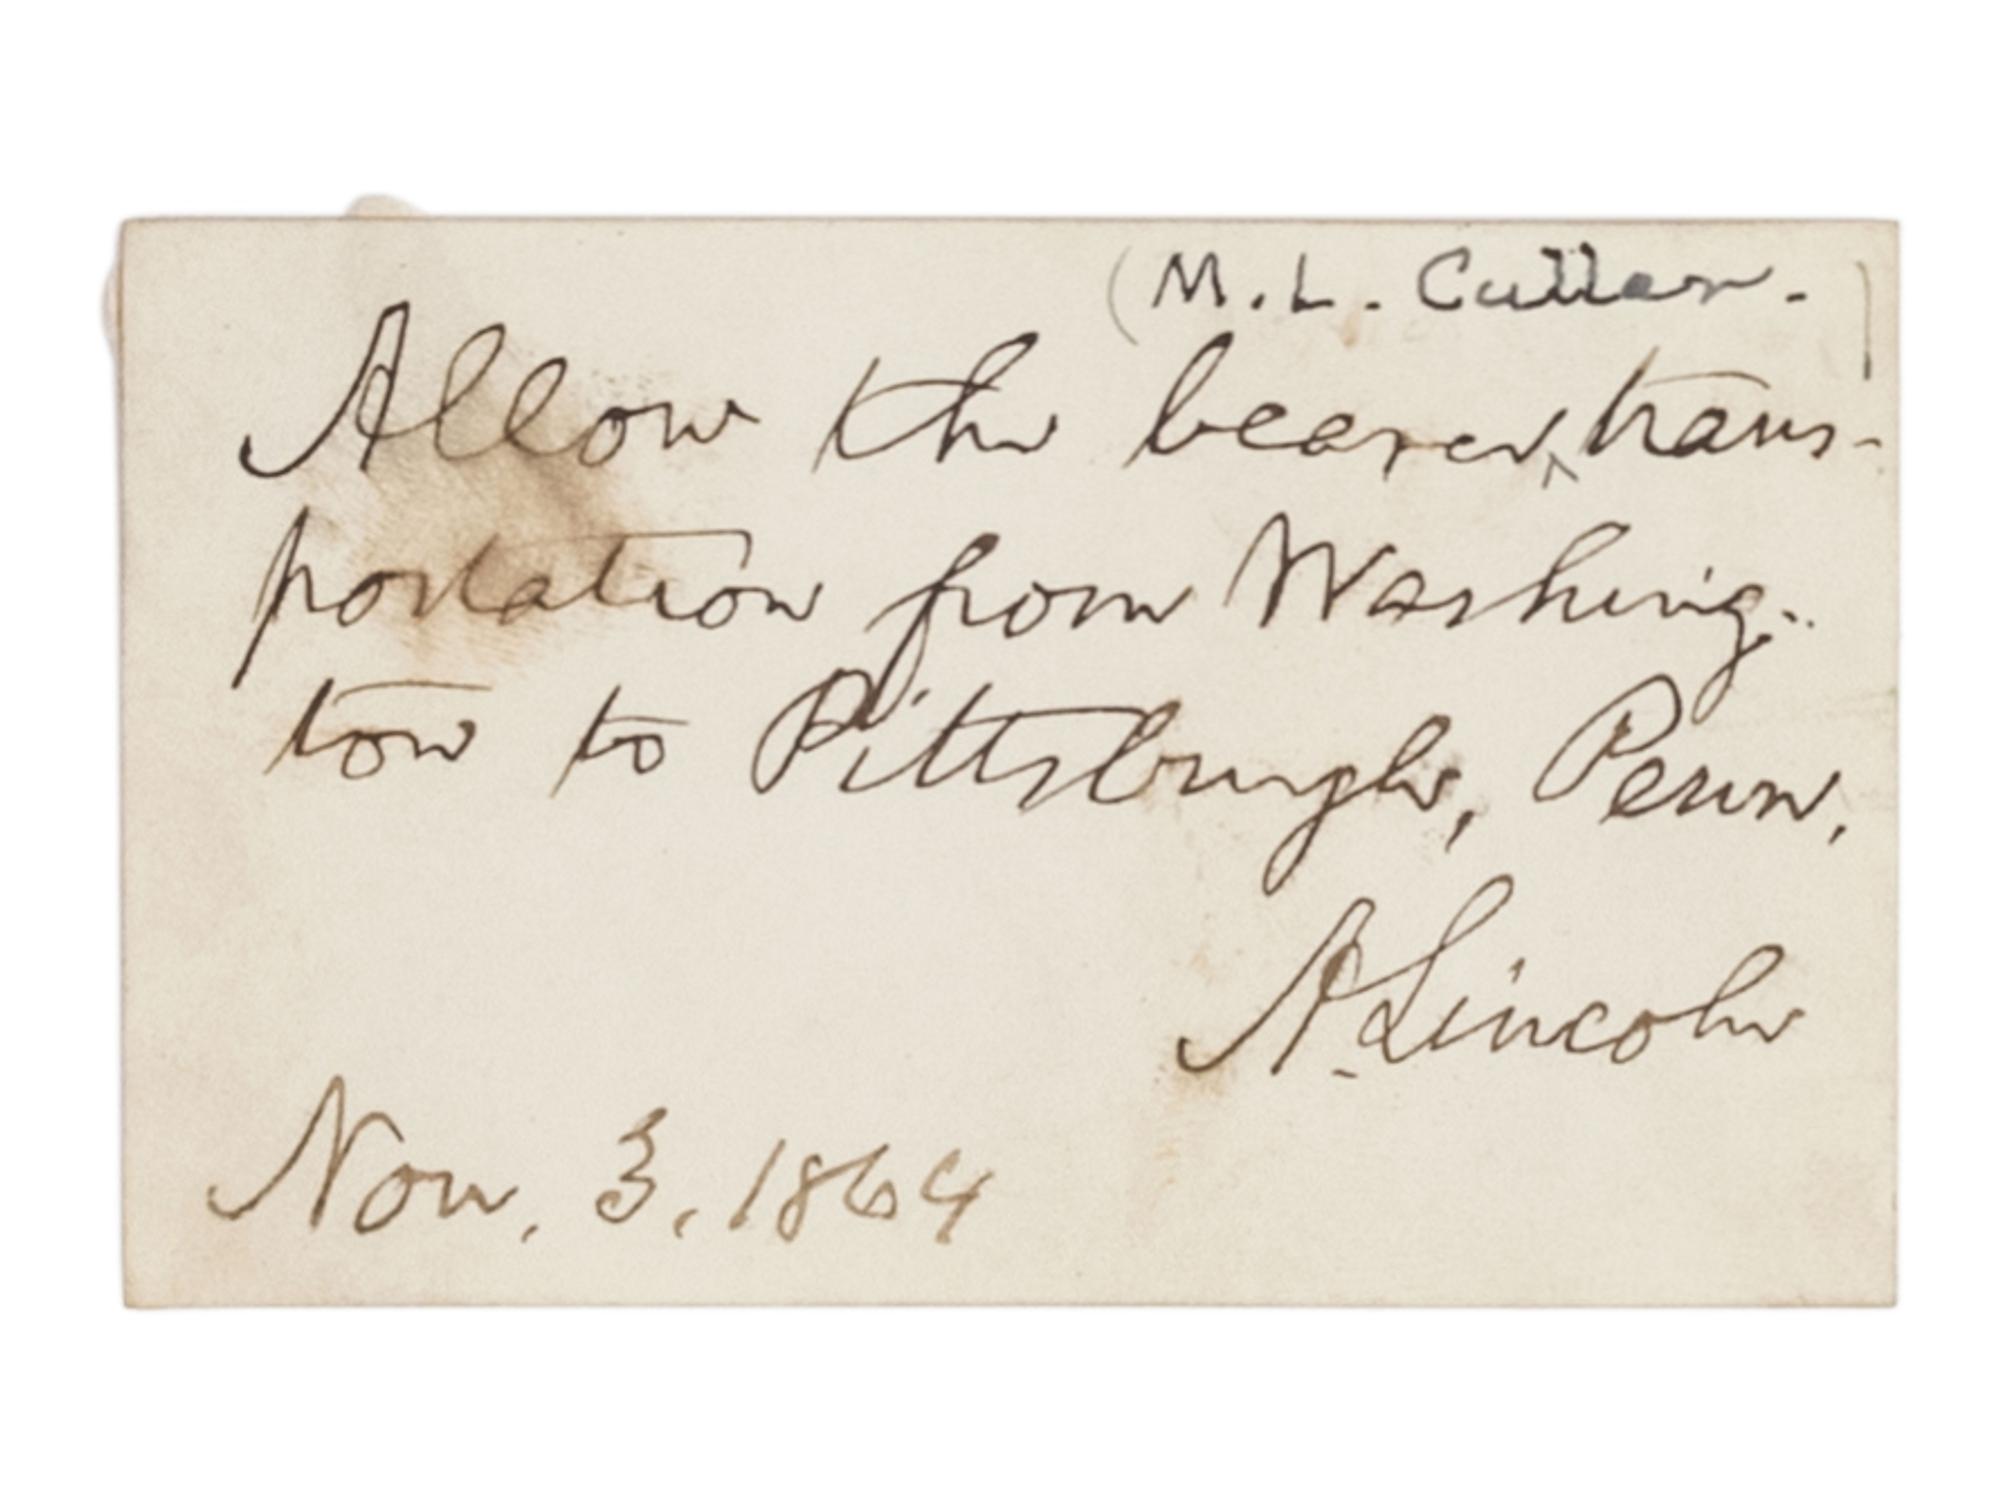 (M. L. Cullen.)
Allow the bearer, ^ trans-
portation from Washing-
ton to Pittsburgh, Penn,
A. Lincoln
Nov. 3, 1864